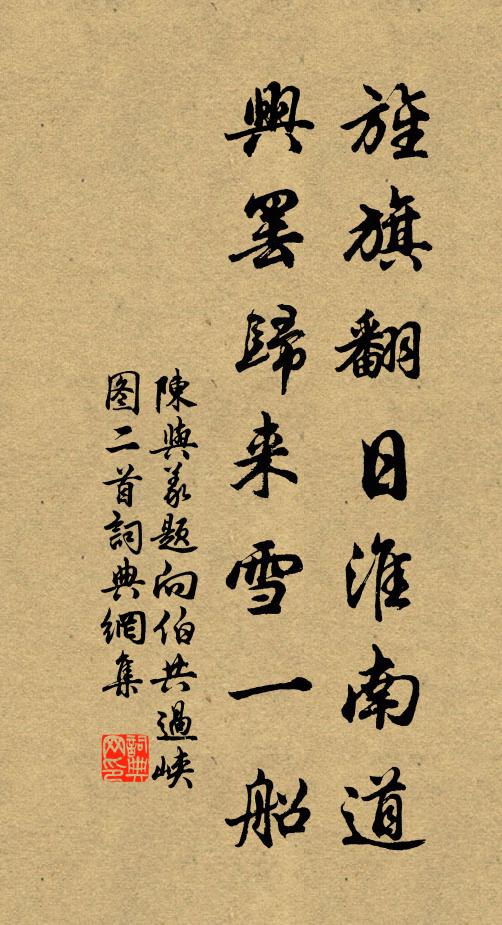 旌旗翻日淮南道
興罢歸来雪一船
陳與义題向伯共過峽
图二首詞典網集
詞典
网印